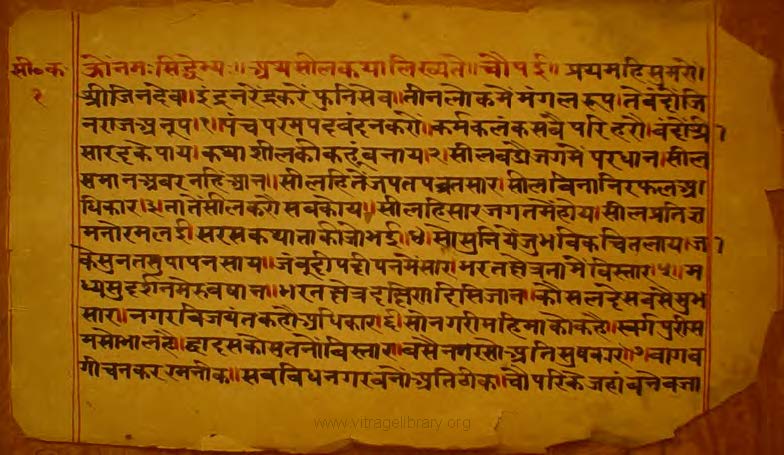 सी॰क॰
१
ॐनमःसिद्धेभ्यः॥अथसीलकथालिख्यते॥चौपई॥प्रथमहिसुमरो।
श्रीजिनदेव।इंद्रनरेंद्रकरेंफुनिसेव।तीनलोकमैमंगलरूप।तेबंदौजि
नराजअनूप।१।पंचपरमपदबंदनकरौ।कर्मकलंकसबैपरिहरौ।बंदौश्री
सारदकेपाय।कथाशीलकीकहूंबनाय।२।सीलबडोजगमेंपरधान।सील
समानअवरनहिआन॥सीलहितेंजपतपव्रतसार।सीलविनानिरफलआ
धिकार।३।तातेंसीलकरोसबकोय॥सीलहिसारजगतमैंहोय।
मनोरमलई।सरसकथाताकीजोभई।४।सोसुनियेंशुभविकचितलाय।जा
केसुनततुपापनसाय।जंबूदीपदीपनमेंसार।भरतक्षेत्रनामेंविस्तार।५॥म
ध्यसुदर्शनमेरुवषान॥भरतक्षेत्रदक्षिणदिसिजान।कौसलदेसबसैसुभ
सार।नगरविजयतकहोअधिकार।६।सोनगरीमहिमाकोकहै।स्वर्गपुरीस
मसोभालहै।द्वादसकोसतनोंविस्तार।बसैनगरसोअतिसुषकार।७।बागब
गीचनकररमनीक॥सबबिधनगरबनोंअतिठीक।चौपरिकेजहांबनेबजा
www.vitragelibrary.org